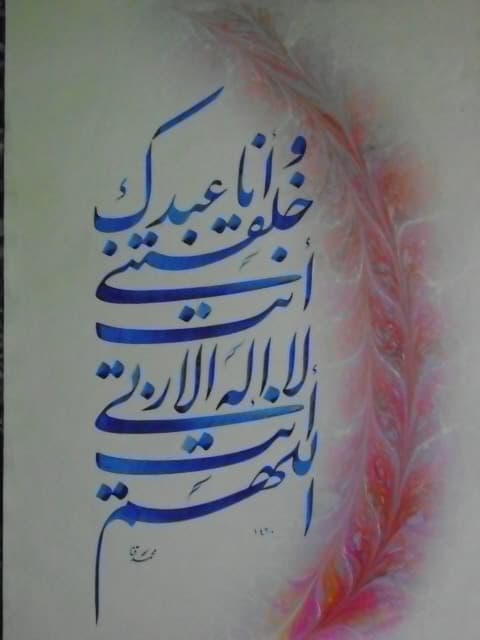 اللهم
أنت
ربي لا اله الا
أنت
خلقتني
وأنا عبدك
١٤٢٠
محمد